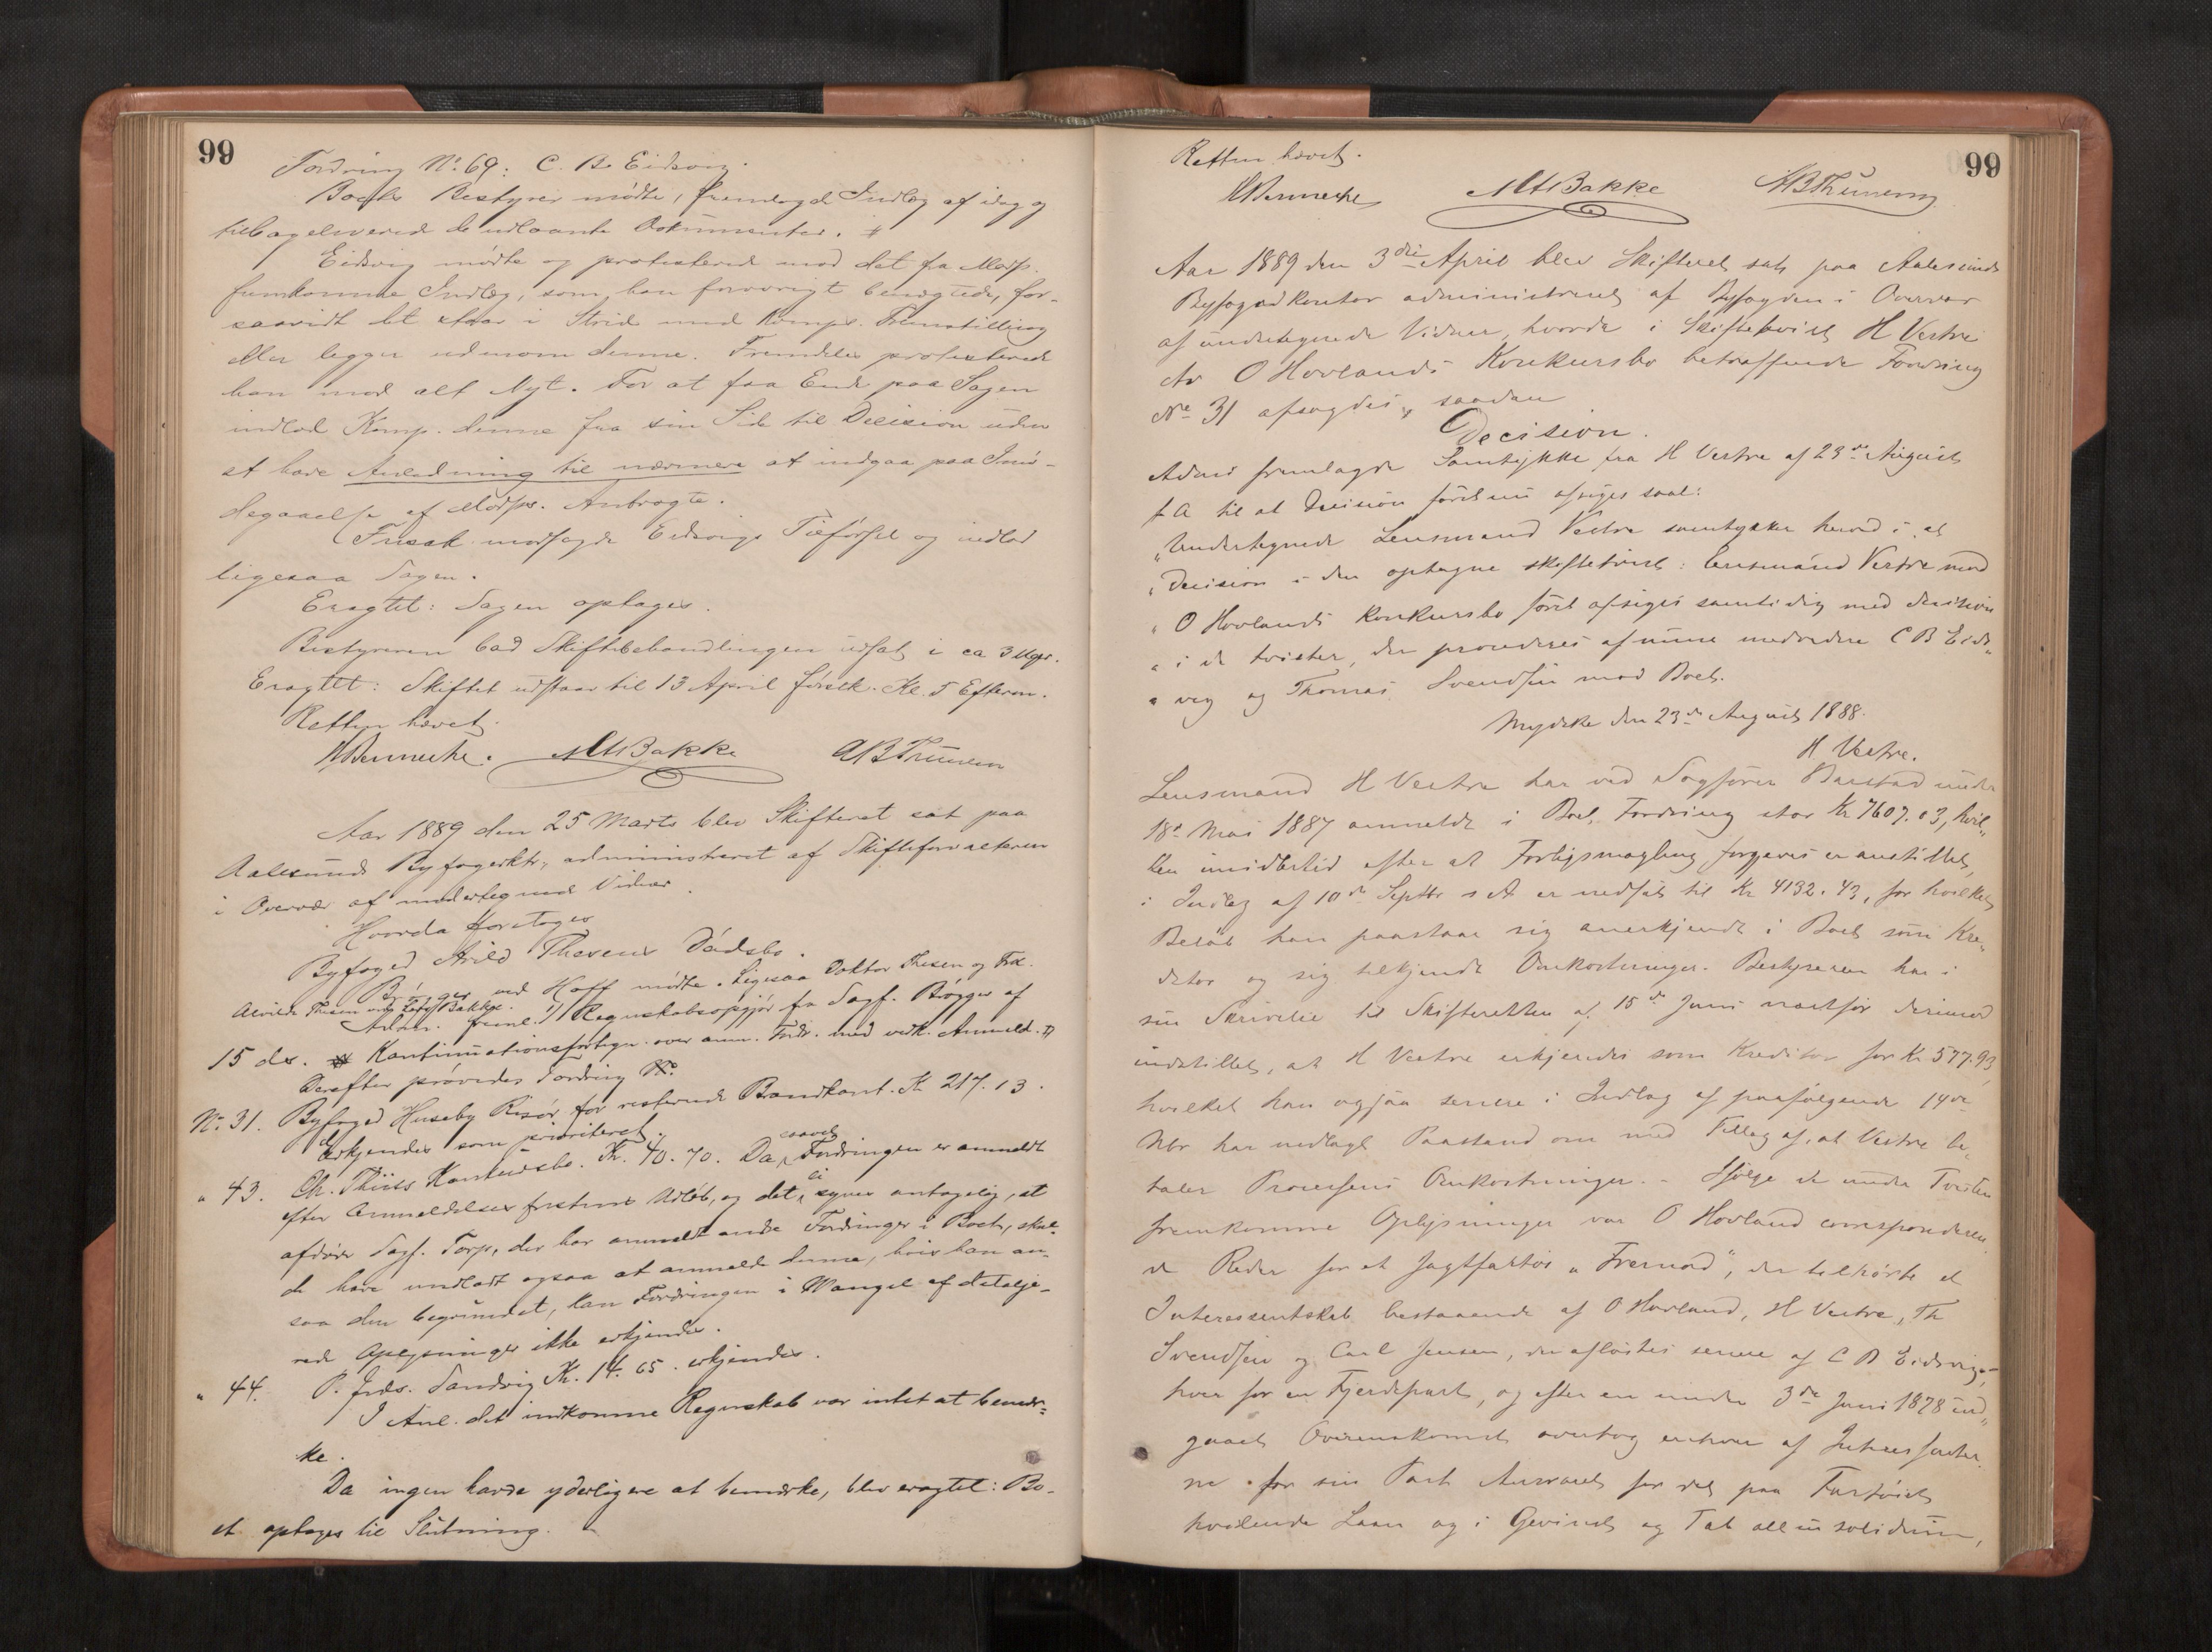 99
Fordring No. 69: C. B. Eidsvig.
Boets Bestyrer mødte, fremlagde Indlæg af idag og
tilbageleverede de udlaante Dokumenter.
Eidsvig mødte og protesterede mod det fra Modp.
fremkomne Indlæg, som han forøvrigt benægtede, for-
saavidt det staar i Strid med Komps. Fremstilling
eller ligger udenom denne. Fremdeles protesterede
han mod alt Nyt. For at faa Ende paa Sagen
indlod Komp. denne fra sin Side til Decision uden
at have Anledning til nærmere at indgaa paa Imø-
degaaelse af Modps. Anbragte.
modsagde Eidsvigs Tilførsel og indlod
ligesaa Sagen.
Eragtet: Sagen optages.
Bestyreren bad Skiftebehandlingen udsat i ca 3 Uger.
Eragtet: Skiftet udstaar til 13 April førstk. Kl. 5 Efterm.
Retten hævet.
HBennecke. MABakke ABThunem
Aar 1889 den 25 Marts blev Skifteret sat paa
Aalesunds Byfogedktr., administreret af Skifteforvalteren
i Overvær af undertegnede Vidner.
Hvorda foretoges
Byfoged Arild Thesens Dødsbo.
Brøgger ved Hoff mødte. Ligesaa Doktor Thesen og Frk.
Alvilde Thesen ved Bakke.
Adm. freml. Regnskabsopgjør fra Sagf. Brøgger af
15 ds. Kontinuationsfortegn. over anm. Fordr. med vedk. Anmeld.
Derefter prøvedes Fordring No.
No. 31. Byfoged Huseby Risør for resterende Brandkont. Kr 217.13.
Erkjendes som prioriteret.
" 43. Ch. Thiis Konkursbo. Kr. 40.70. Da saavel Fordringen er anmeldt
efter Anmeldelsesfristens Udløb, og det ei synes antagelig, at
afdøde Sagf. Torp, der har anmeldt andre Fordringer i Boet, skul-
de have undladt ogsaa at anmelde denne, hvis han an-
saa den begrundet, kan Fordringen i Mangel af detalje-
rede Oplysninger ikke erkjendes.
" 44. P. Sandvig Kr. 14.65. erkjendes.
I Anl. det indkomne Regnskab var intet at bemær-
ke.
Da ingen havde yderligere at bemærke, blev eragtet: Bo-
et optages til Slutning.
99
Retten hævet.
HBennecke MABakke ABThunem
Aar 1889 den 3die April blev Skifteret sat paa Aalesunds
Byfogedkontor administreret af Byfogden i Overvær
af undertegnede Vidner, hvorda i Skiftetvist H Vestre
ctr O Hovlands Konkursbo betræffende Fordring
No 31 afsagdes saadan
Decision.
Admr fremlagde Samtykke fra H Vestre af 23de August
f A til at Decision først nu afsiges saal:
"Undertegnede Lensmand Vestre samtykker herved i at
"Decision i den optagne Skiftetvist: Lensmand Vestre mod
"O Hovlands Konkursbo først afsiges samtidig med Decision
"i de tvister, der procederes af mine medredere C B Eids„
"vig og Thomas Svendsen mod Boet.
den 23de August 1888.
H Vestre.
Lensmand H Vestre har ved Sagfører Barstad under
18de Mai 1887 anmeldt i Boet Fordring stor Kr 7607.03, hvil„
ken imidlertid efter at Forligsmægling forgjæves er anstillet,
i Indlæg af 10de Septbr s A er nedsat til Kr 4132.43, for hvilket
Beløb han paastaar sig anerkjendt i Boet som Kre„
ditor og sig tilkjendt Omkostninger. Bestyreren har i
sin Skrivelse til Skifteretten af 15de Juni næstfør derimod
indstillet, at H Vestre erkjendes som Kreditor for Kr 577.93,
hvilket han ogsaa senere i Indlæg af paafølgende 14de
Nbr har nedlagt Paastand om med Tillæg af, at Vestre be„
taler Processens Omkostninger. – Ifølge de under Tvisten
fremkomne Oplysninger var O Hovland corresponderen„
de Reder for et Jagtfartøi „Fremad", der tilhørte et
Interessentskab bestaaende af O Hovland, H Vestre, Th
Svendsen og Carl Jensen, der afløstes senere af C B Eidsvig,
hver for en Fjerdepart, og efter en under 3de Juni 1878 ind„
gaaet Overenskomst overtog enhver af Interessenter„
ne for sin Part Ansvaret for det paa Fartøiet
hvilende Laan og i Gevinst og Tab alle in solidum,